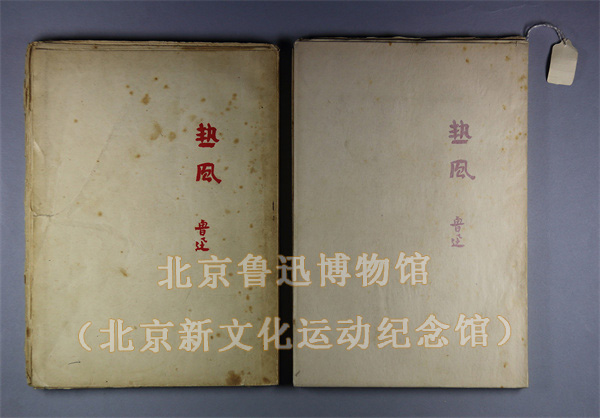 热风
鲁迅
热风
鲁迅
北京鲁迅博物馆
（北京新文化运动纪念馆）